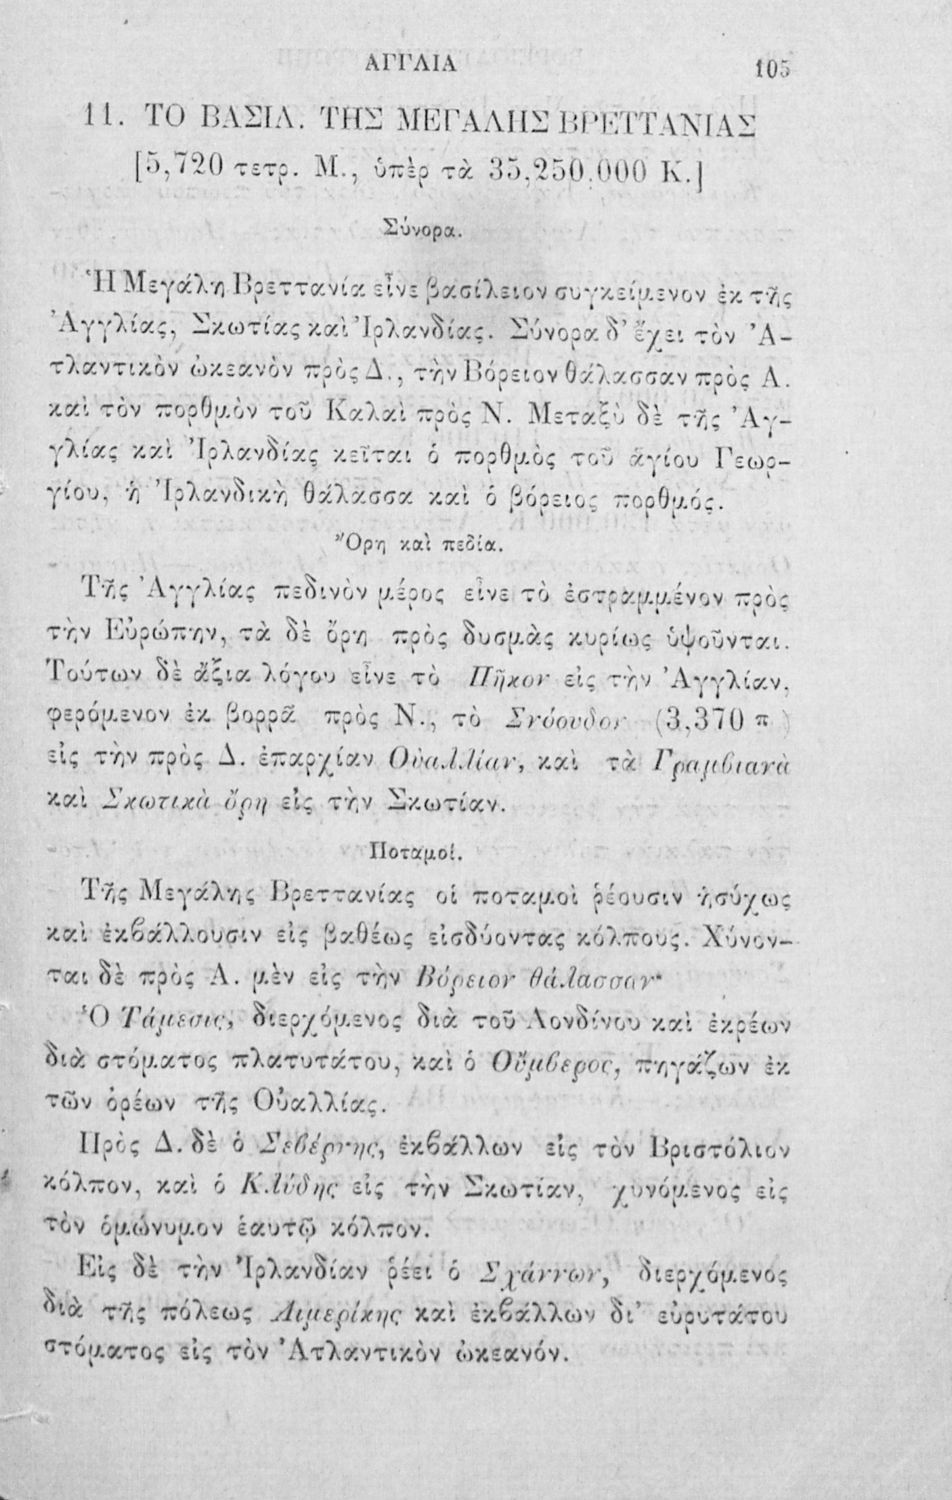 ΑΓΓΛΙΑ
105
11. ΤΟ ΒΑΣΙΛ. ΤΗΣ ΜΕΓΑΛΗΣ ΒΡΕΤΤΑΝΙΑΣ
[5,720 τετρ. Μ., ὑπὲρ τὰ 35,250,000 Κ.]
Σύνορα.
Ἡ Μεγάλη Βρεττανία εἶνε βασίλειον συγκείμενον ἐκ τῆς
Ἀγγλίας, Σκωτίας καὶ Ἰρλανδίας. Σύνορα δ’ ἔχει τὸν Ἀ-
τλαντικὸν ὠκεανὸν πρὸς Δ., τὴν Βόρειον θάλασσαν πρὸς Α.
καὶ τὸν πορθμὸν τοῦ Καλαὶ πρὸς Ν. Μεταξὺ δὲ τῆς Ἀγ-
γλίας καὶ Ἰρλανδίας κεῖται ὁ πορθμὸς τοῦ ἁγίου Γεωρ-
γίου, ἡ Ἰρλανδικὴ θάλασσα καὶ ὁ βόρειος πορθμός.
Ὄρη καὶ πεδία.
Τῆς Ἀγγλίας πεδινὸν μέρος εἶνε τὸ ἐστραμμένον πρὸς
τὴν Εὐρώπην, τὰ δὲ ὄρη πρὸς δυσμὰς κυρίως ὑψοῦνται.
Τούτων δὲ ἄξια λόγου εἶνε τὸ Πῆκον εἰς τὴν Ἀγγλίαν,
φερόμενον ἐκ βορρᾶ πρὸς Ν., τὸ Σνόουδον (3,370 π )
εἰς τὴν πρὸς Δ. ἐπαρχίαν Οὐαλλίαν, καὶ τὰ Γραμβιανὰ
καὶ Σκωτικὰ ὄρη εἰς τὴν Σκωτίαν.
Ποταμοί.
Τῆς Μεγάλης Βρεττανίας οἱ ποταμοὶ ῥέουσιν ἡσύχως
καὶ ἐκβάλλουσιν εἰς βαθέως εἰσδύοντας κόλπους. Χύνον-
ται δὲ πρὸς Α. μὲν εἰς τὴν Βόρειον θάλασσαν·
Ὁ Τάμεσις, διερχόμενος διὰ τοῦ Λονδίνου καὶ ἐκρέων
διὰ στόματος πλατυτάτου, καὶ ὁ Οὔμβερος, πηγάζων ἐκ
τῶν ὀρέων τῆς Οὐαλλίας.
Πρὸς Δ. δὲ ὁ Σεβέρνης, ἐκβάλλων εἰς τὸν Βριστόλιον
κόλπον, καὶ ὁ Κλύδης εἰς τὴν Σκωτίαν, χυνόμενος εἰς
τὸν ὁμώνυμον ἑαυτῷ κόλπον.
Εἰς δὲ τὴν Ἰρλανδίαν ῥέει ὁ Σχάννων, διερχόμενος
διὰ τῆς πόλεως Λιμερίκης καὶ ἐκβάλλων δι’ εὐρυτάτου
στόματος εἰς τὸν Ἀτλαντικὸν ὠκεανόν.